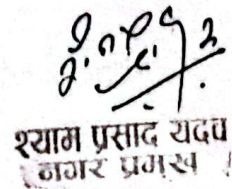 श्याम प्रसाद यदव
नगर प्रमुख